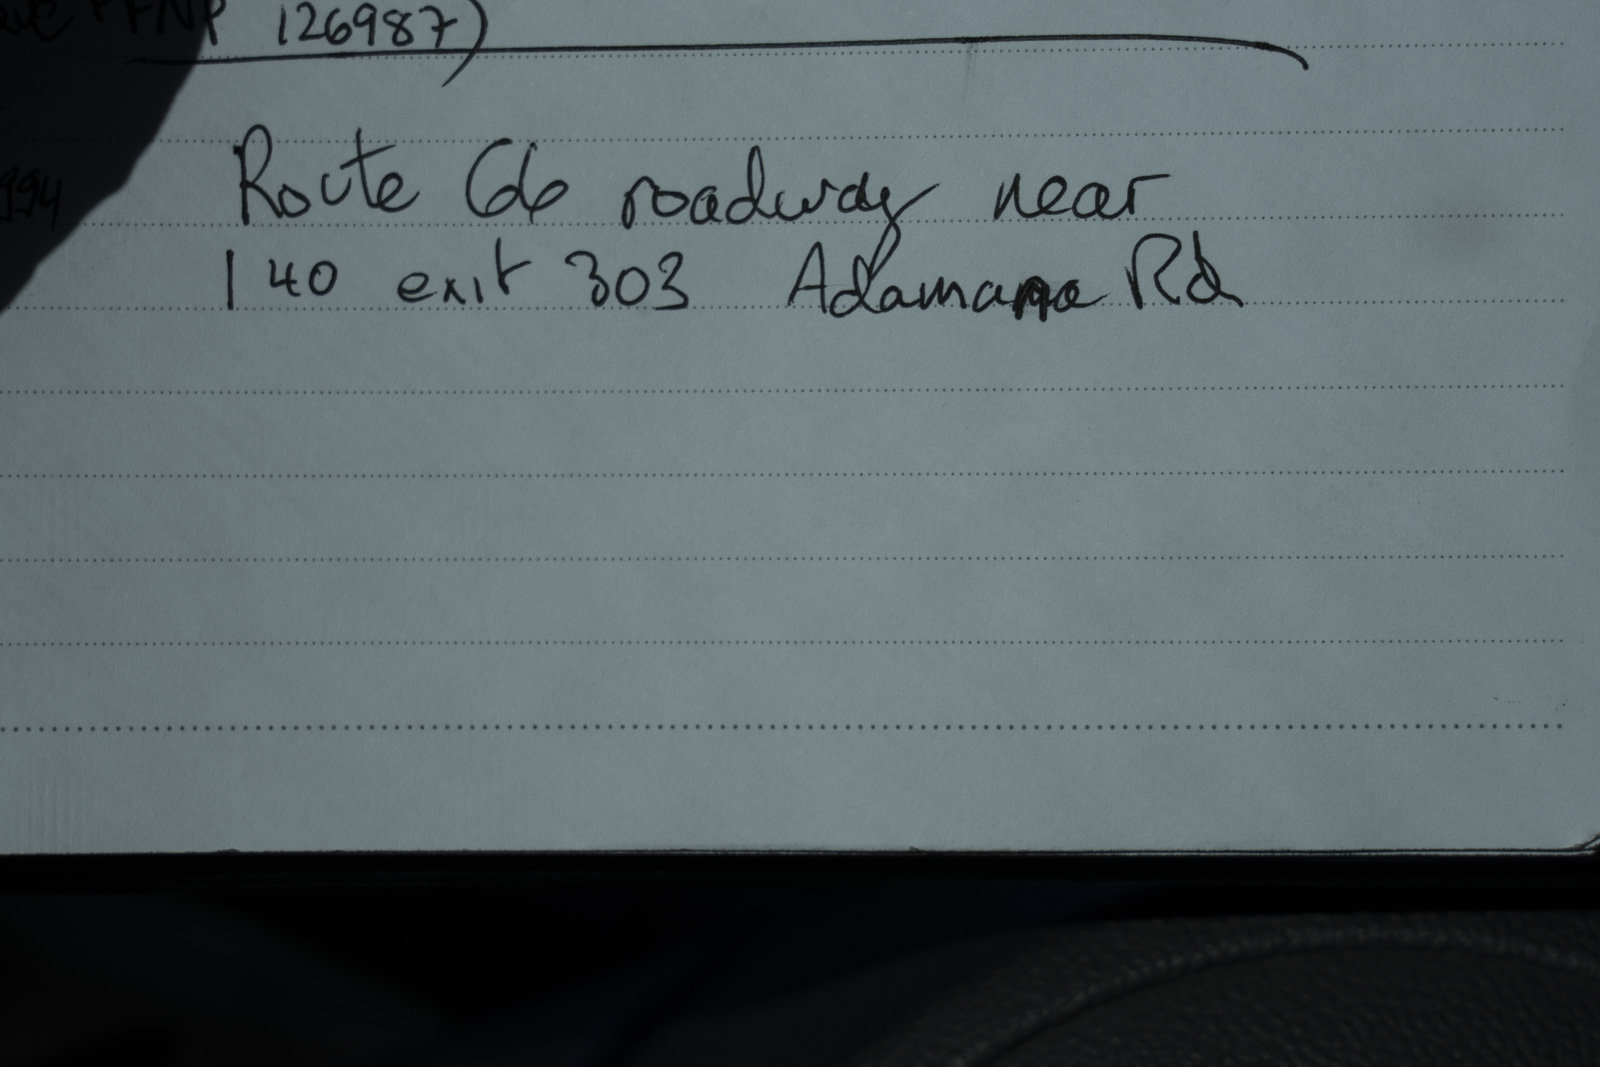 PFNP 126987)
994 Route 66 roadway near
I 40 exit 303 Adamana Rd